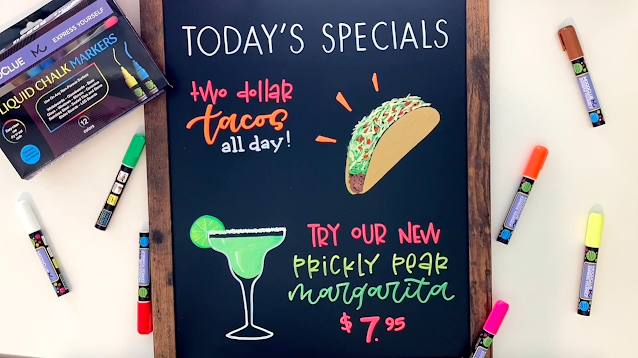 TODAY'S SPECIALS
two dollar
tacos
all day!
TRY OUR NEW
PRICKLY PEAR
margarita
$7.95
EXPRESS YOURSELF
LIQUID CHALK MARKERS
12